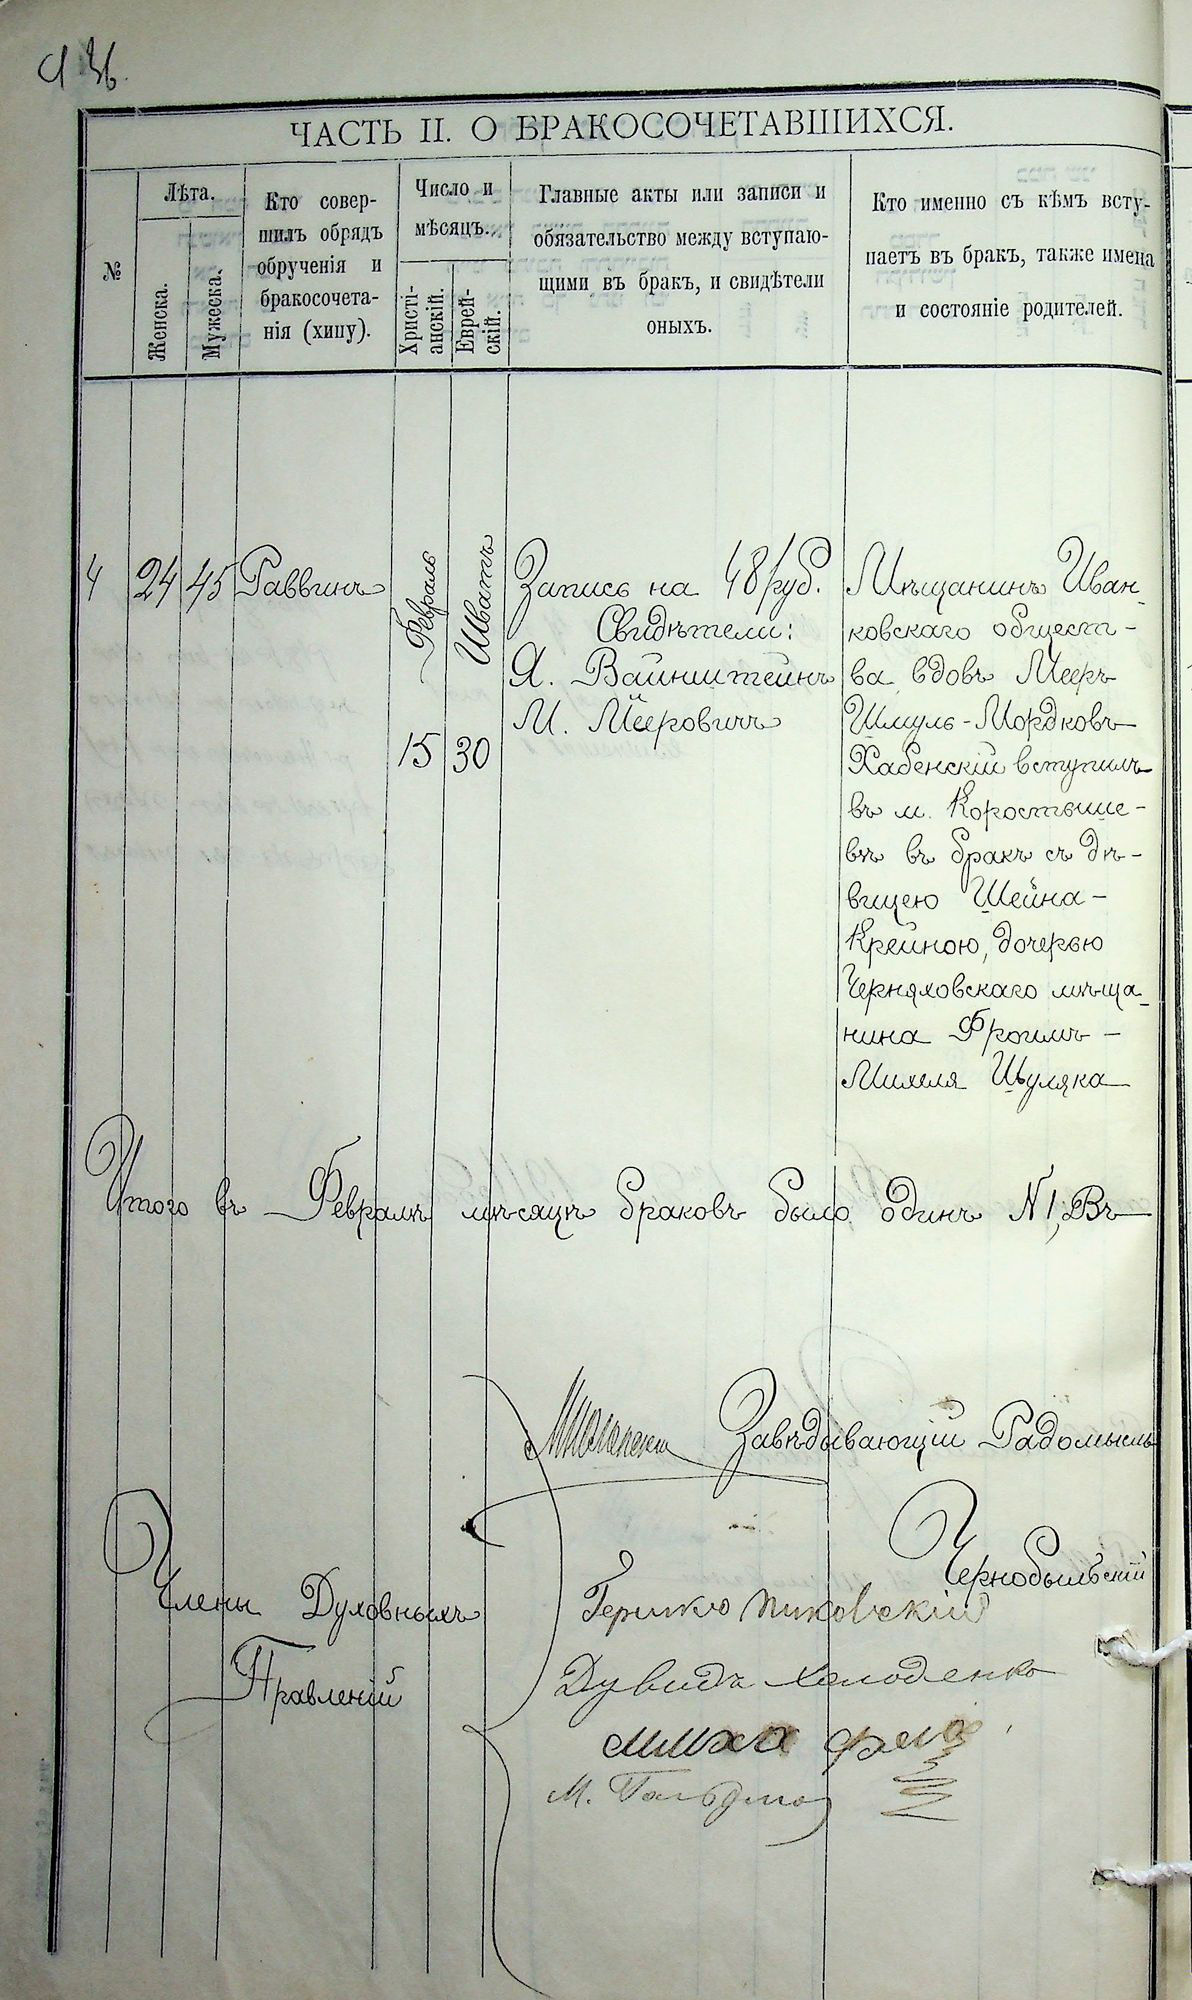 ЧАСТЬ II. О БРАКОСОЧЕТАВШИХСЯ.
№
Лѣта.
Женска.
Мужеска.
Кто совер-
шилъ обрядъ
обрученія и
бракосочета-
нія (хипу).
Число и
мѣсяцъ.
Христі-
анскій.
Еврей-
скій.
Главные акты или записи и
обязательство между вступаю-
щими въ бракъ, и свидѣтели
оныхъ.
Кто именно съ кѣмъ всту-
паетъ въ бракъ, также имена
и состояніе родителей.
4
24
45
Раввинъ
Февраль
15
Шватъ
30
Запись на 48 руб.
Свидѣтели:
Я. Вайнштейнъ
М. Мееровичъ
Мѣщанинъ Иван-
ковскаго общест-
ва вдовъ Мееръ
Шмуль-Мордковъ
Хабенскій вступилъ
въ м. Коростыше-
вѣ въ бракъ съ дѣ-
вицею Шейна-
Крейною, дочерью
Черняховскаго мѣща-
нина Фроимъ-
Михеля Шуляка
Итого въ Февралѣ мѣсяцѣ браковъ было одинъ N 1, Въ
Завѣдывающій Радомысль
Чернобыльскій
Члены Духовныхъ
Правленій
Гершко Пиковскій
Дувидъ Холоденко
М.